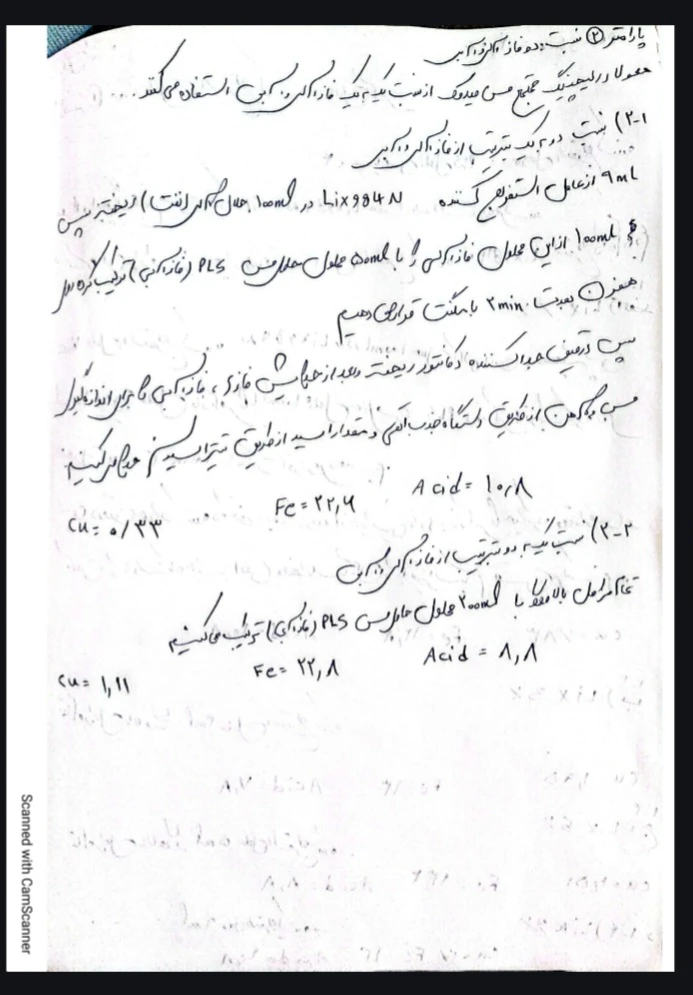 پارامتر ② نسبت دو فاز آلی و آبی
معمولا در لیچینگ مجتمع مس میدوک از نسبت یک به یک فاز آلی و آبی استفاده می کنند.
۲-۱) نسبت دو به یک بترتیب از فاز آلی و آبی
۹mL از عامل استخراج کننده Lix984N در ۱۰۰ml حلال آلی (نفت) ریخته سپس
۱۰۰ml از این محلول فاز آلی را با ۵۰ml محلول حامل مس PLS (فاز آبی) ترکیب کرده روی
همزن بمدت ۲min با مگنت قرار می دهیم
سپس در قیف جدا کننده دکانتور ریخته و بعد از جدایش فازها، فاز آبی را برای اندازه گیری
مس و آهن از طریق دستگاه جذب اتم و مقدار اسید از طریق تیتر اسید
Cu = ۰/۳۳ Fe = ۲۲,۶ Acid = ۱۰,۸
۲-۲) نسبت یک به دو بترتیب از فاز آلی و آبی
تمام مراحل بالا با ۲۰۰ml محلول حامل مس PLS (فاز آبی) ترکیب می کنیم
Cu = ۱,۱۱ Fe = ۲۲,۸ Acid = ۸,۸
Scanned with CamScanner